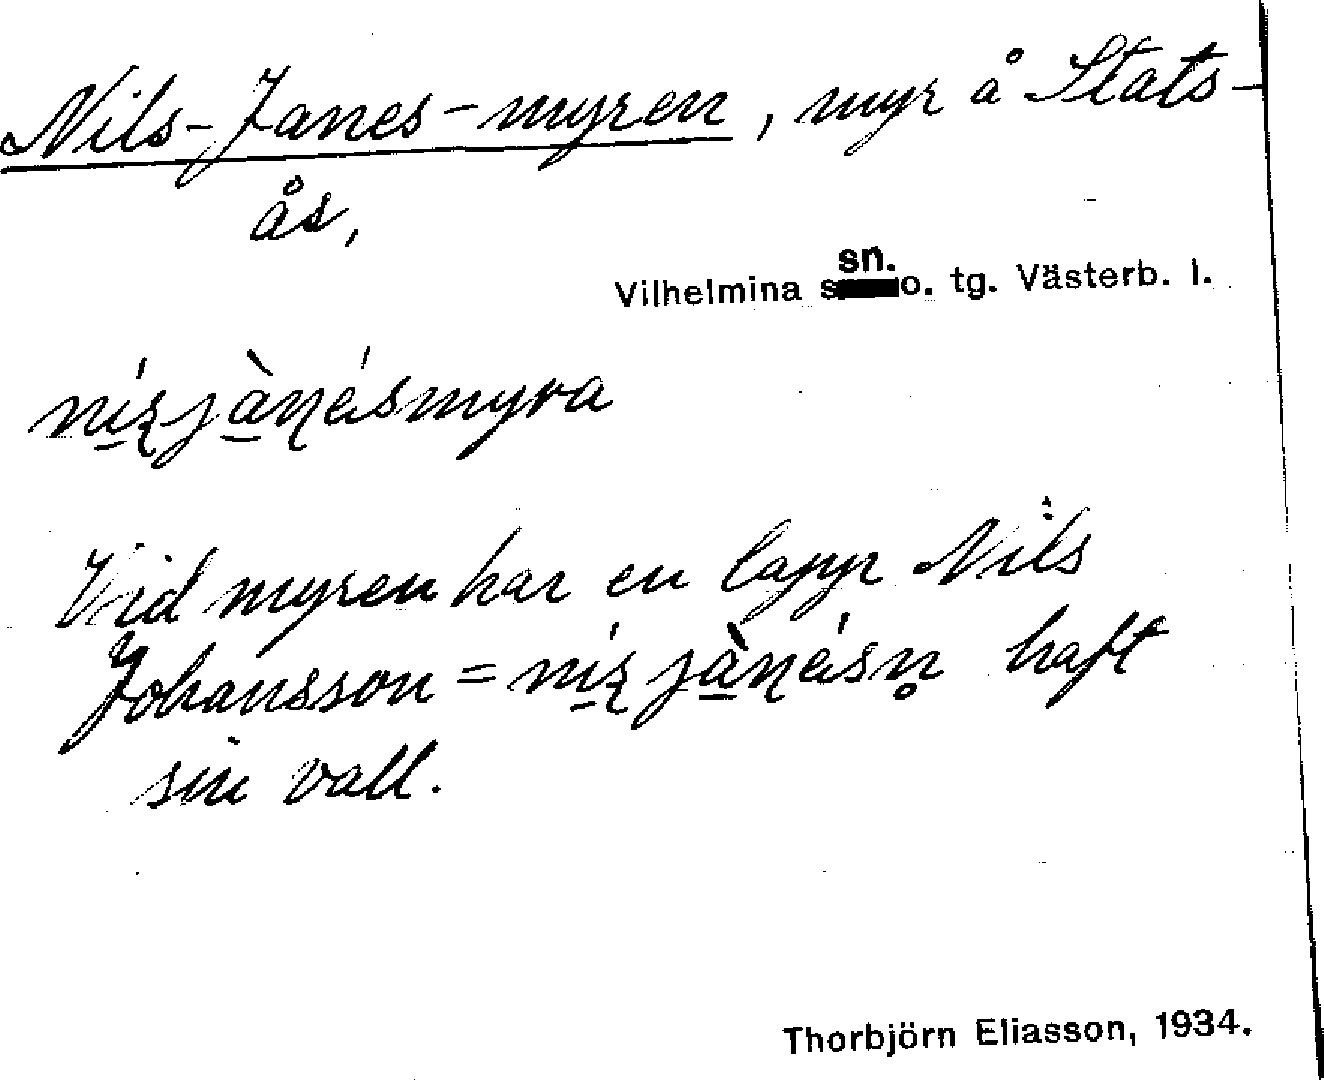 Nils-Janes-myren, myr å Stats-
ås,
Vilhelmina sn. o. tg. Västerb. l.
nísjànésmyra
Vid myren har en lapp Nils
Johansson = nís jànésn̥ haft
sin vall.
Thorbjörn Eliasson, 1934.